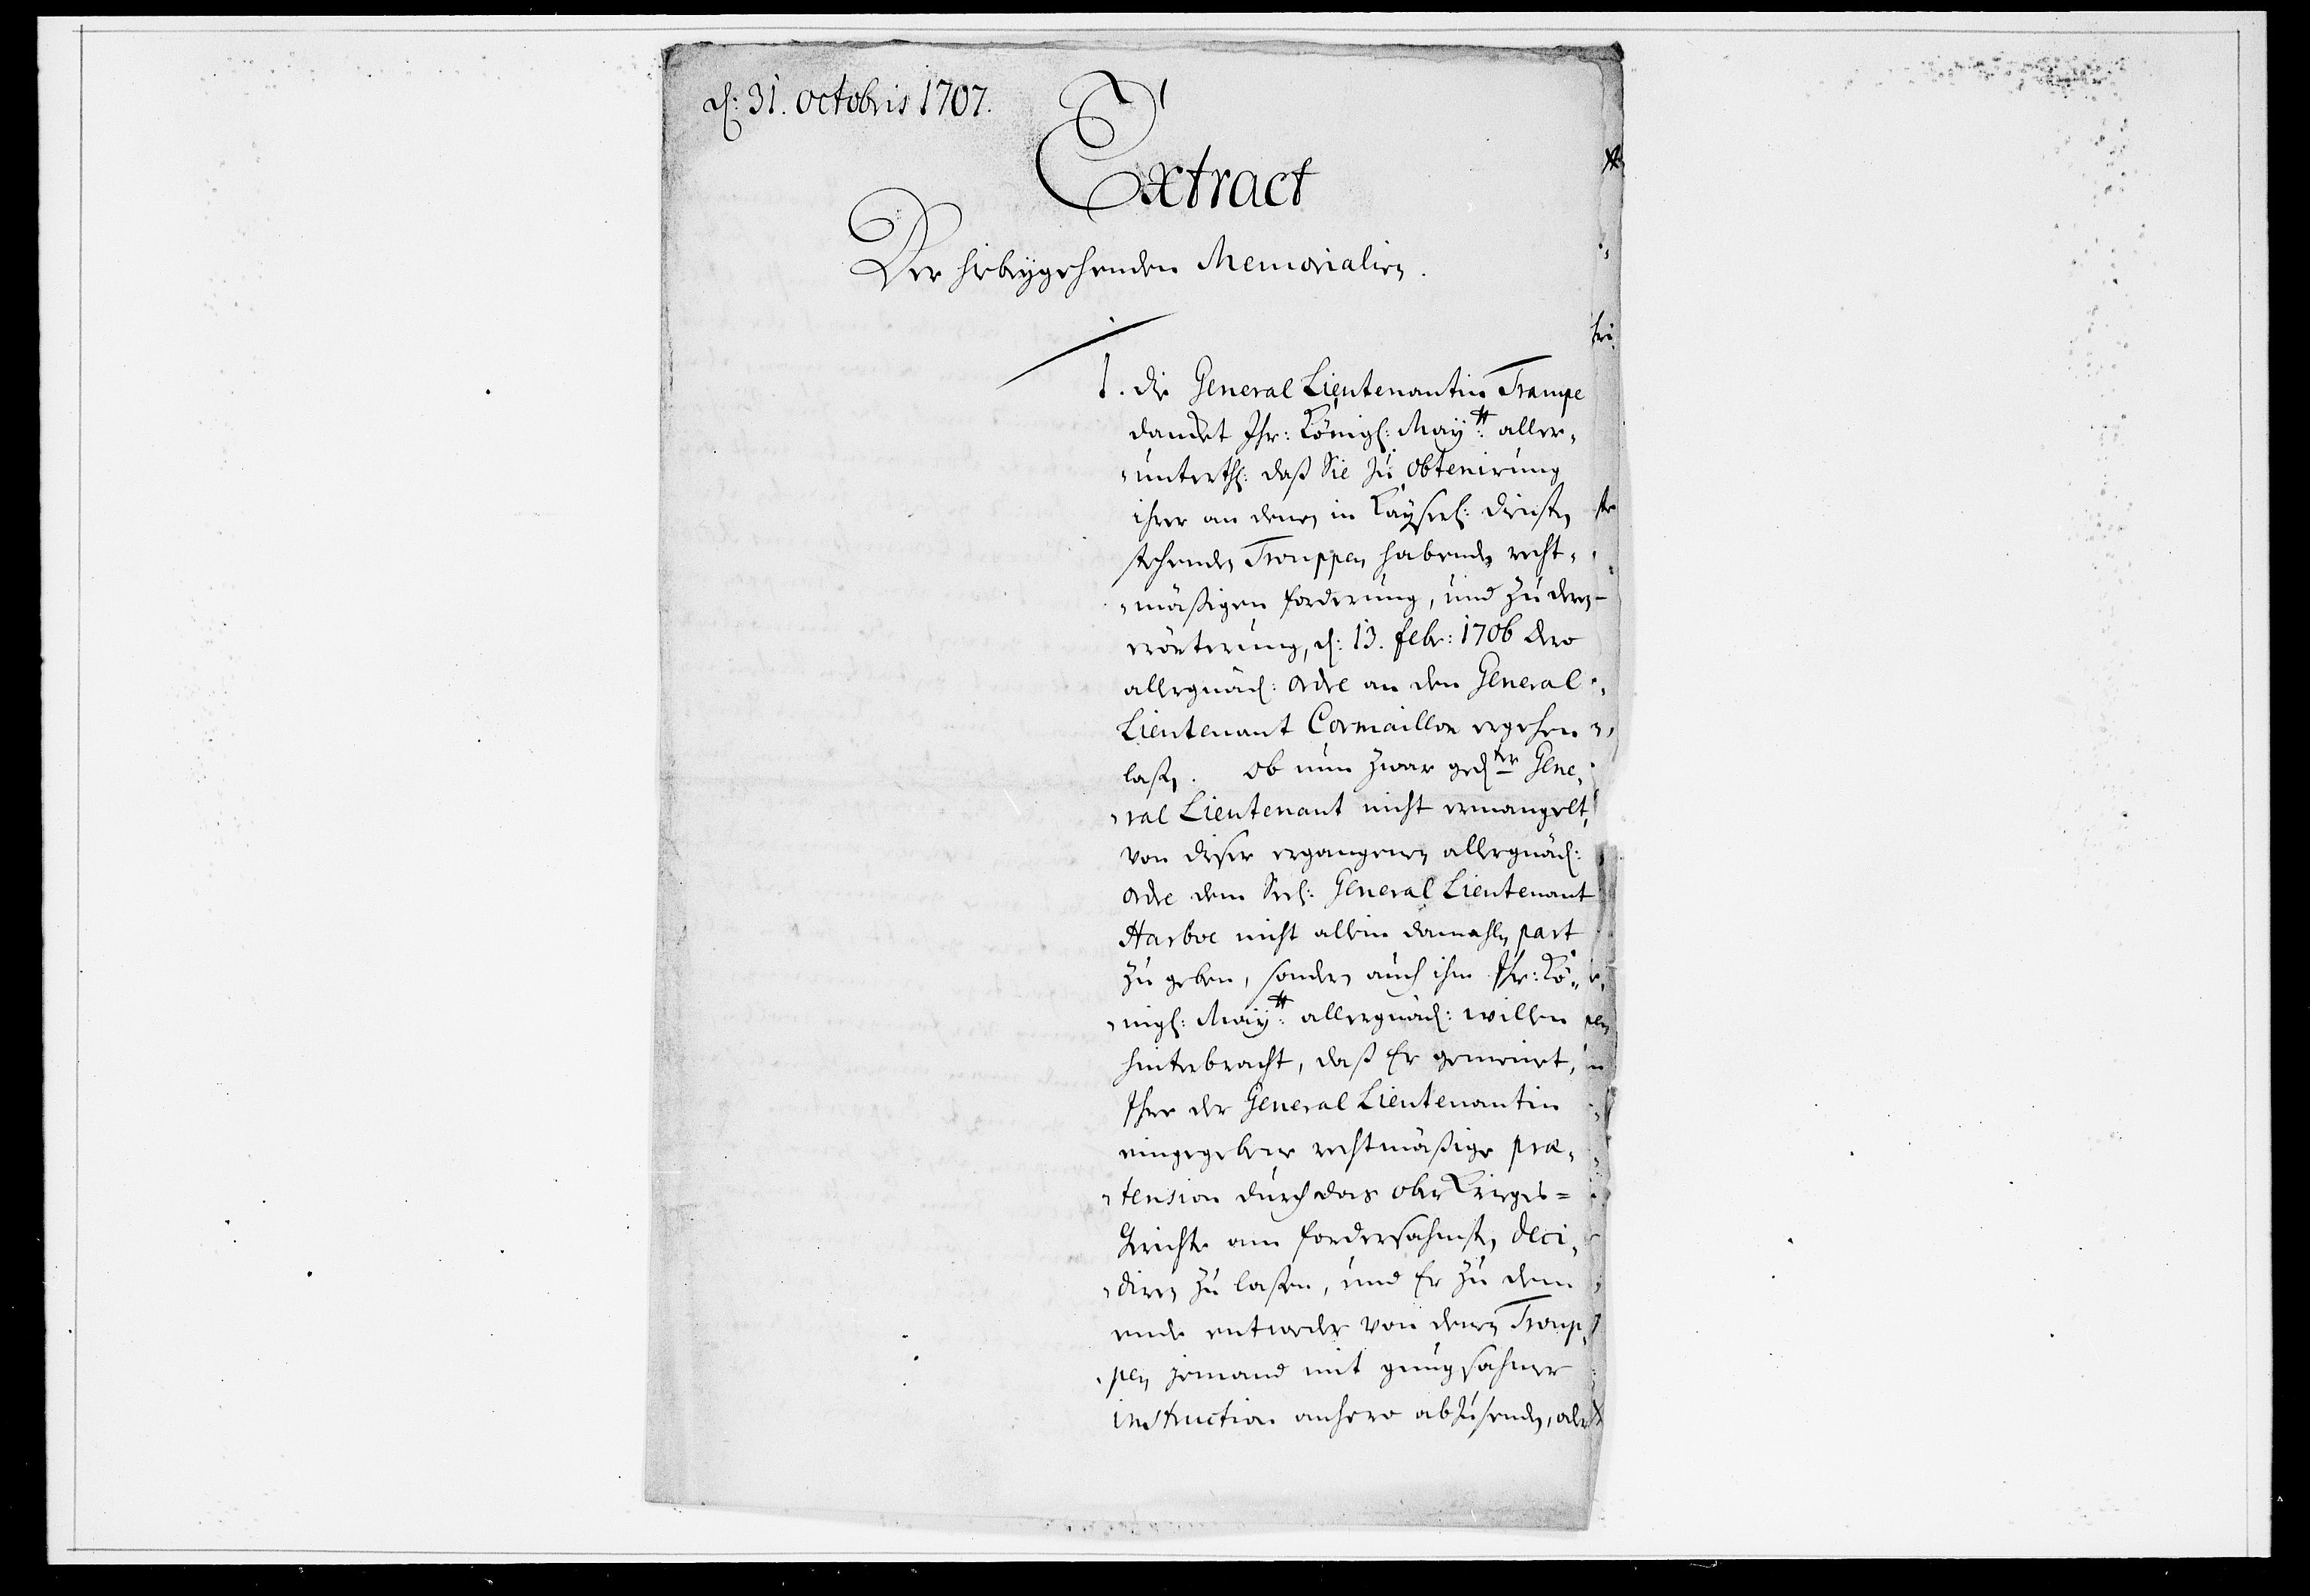 d: 31. octobris 1707.
Extract
Der hiebeygehenden Memorialien.
1. Die General Lieutenantin Trampe
dancket Ihr: Königl: Mayᵗᵗ: aller-
-unterth: daß Sie zu Obtenirung
ihrer an denen in Kayserl: Diensten
stehenden Trouppen habenden recht-
-mäßigen forderung, und zu deren
erörterung, d: 13. febr: 1706 dero
allergnäd: ordre an den General
Lieutenant Cormaillon ergehen
laßen. Ob nun zwar gedᵗᵉʳ Gene-
-ral Lieutenant nicht ermangelt,
von dieser ergangenen allergnäd:
ordre dem Seel: General Lieutenant
Harboe nicht allein damahls part
zu geben, sondern auch ihm Ihr: Kö-
-nigl: Mayᵗᵗ: allergnäd: willen
hinterbracht, daß Er gemeinet,
Ihre der General Lieutenantin
eingegebene rechtmäßige præ-
-tension durch das ober Krieges=
Gericht am fordersahmsten deci-
-diren zu laßen, und Er zu dem
ende entweder von denen Troup-
-pen jemand mit gnugsahmer
instruction anhero abzusenden, oder